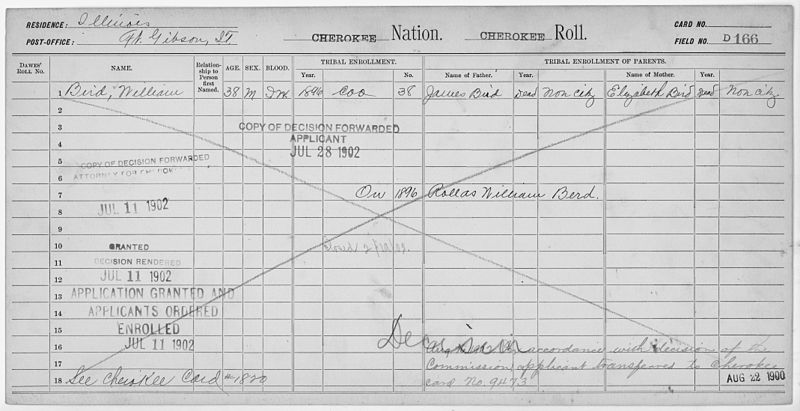 RESIDENCE: Illinois
POST-OFFICE: Ft. Gibson, I.T.
CHEROKEE Nation. CHEROKEE Roll.
CARD NO.
FIELD NO. D 166
DAWES' ROLL NO. NAME. Relationship to Person first Named. AGE. SEX. BLOOD. TRIBAL ENROLLMENT. TRIBAL ENROLLMENT OF PARENTS.
Year. No. Name of Father. Year. Name of Mother. Year.
1 Bird, William 38 M 1896 Coo 38 James Bird Dead Non city Elizabeth Bird Dead Non city
2
3 COPY OF DECISION FORWARDED
4 APPLICANT
JUL 28 1902
5 COPY OF DECISION FORWARDED
6 ATTORNEY FOR
7 On 1896 Roll as William Berd.
8 JUL 11 1902
9
10 GRANTED
11 DECISION RENDERED
12 JUL 11 1902
13 APPLICATION GRANTED AND
14 APPLICANTS ORDERED
15 ENROLLED
16 JUL 11 1902 accordance with decision of the
17 Commission, applicant transferred to Cherokee
18 See Cherokee Card #1820 card No. 9473 AUG 22 1900